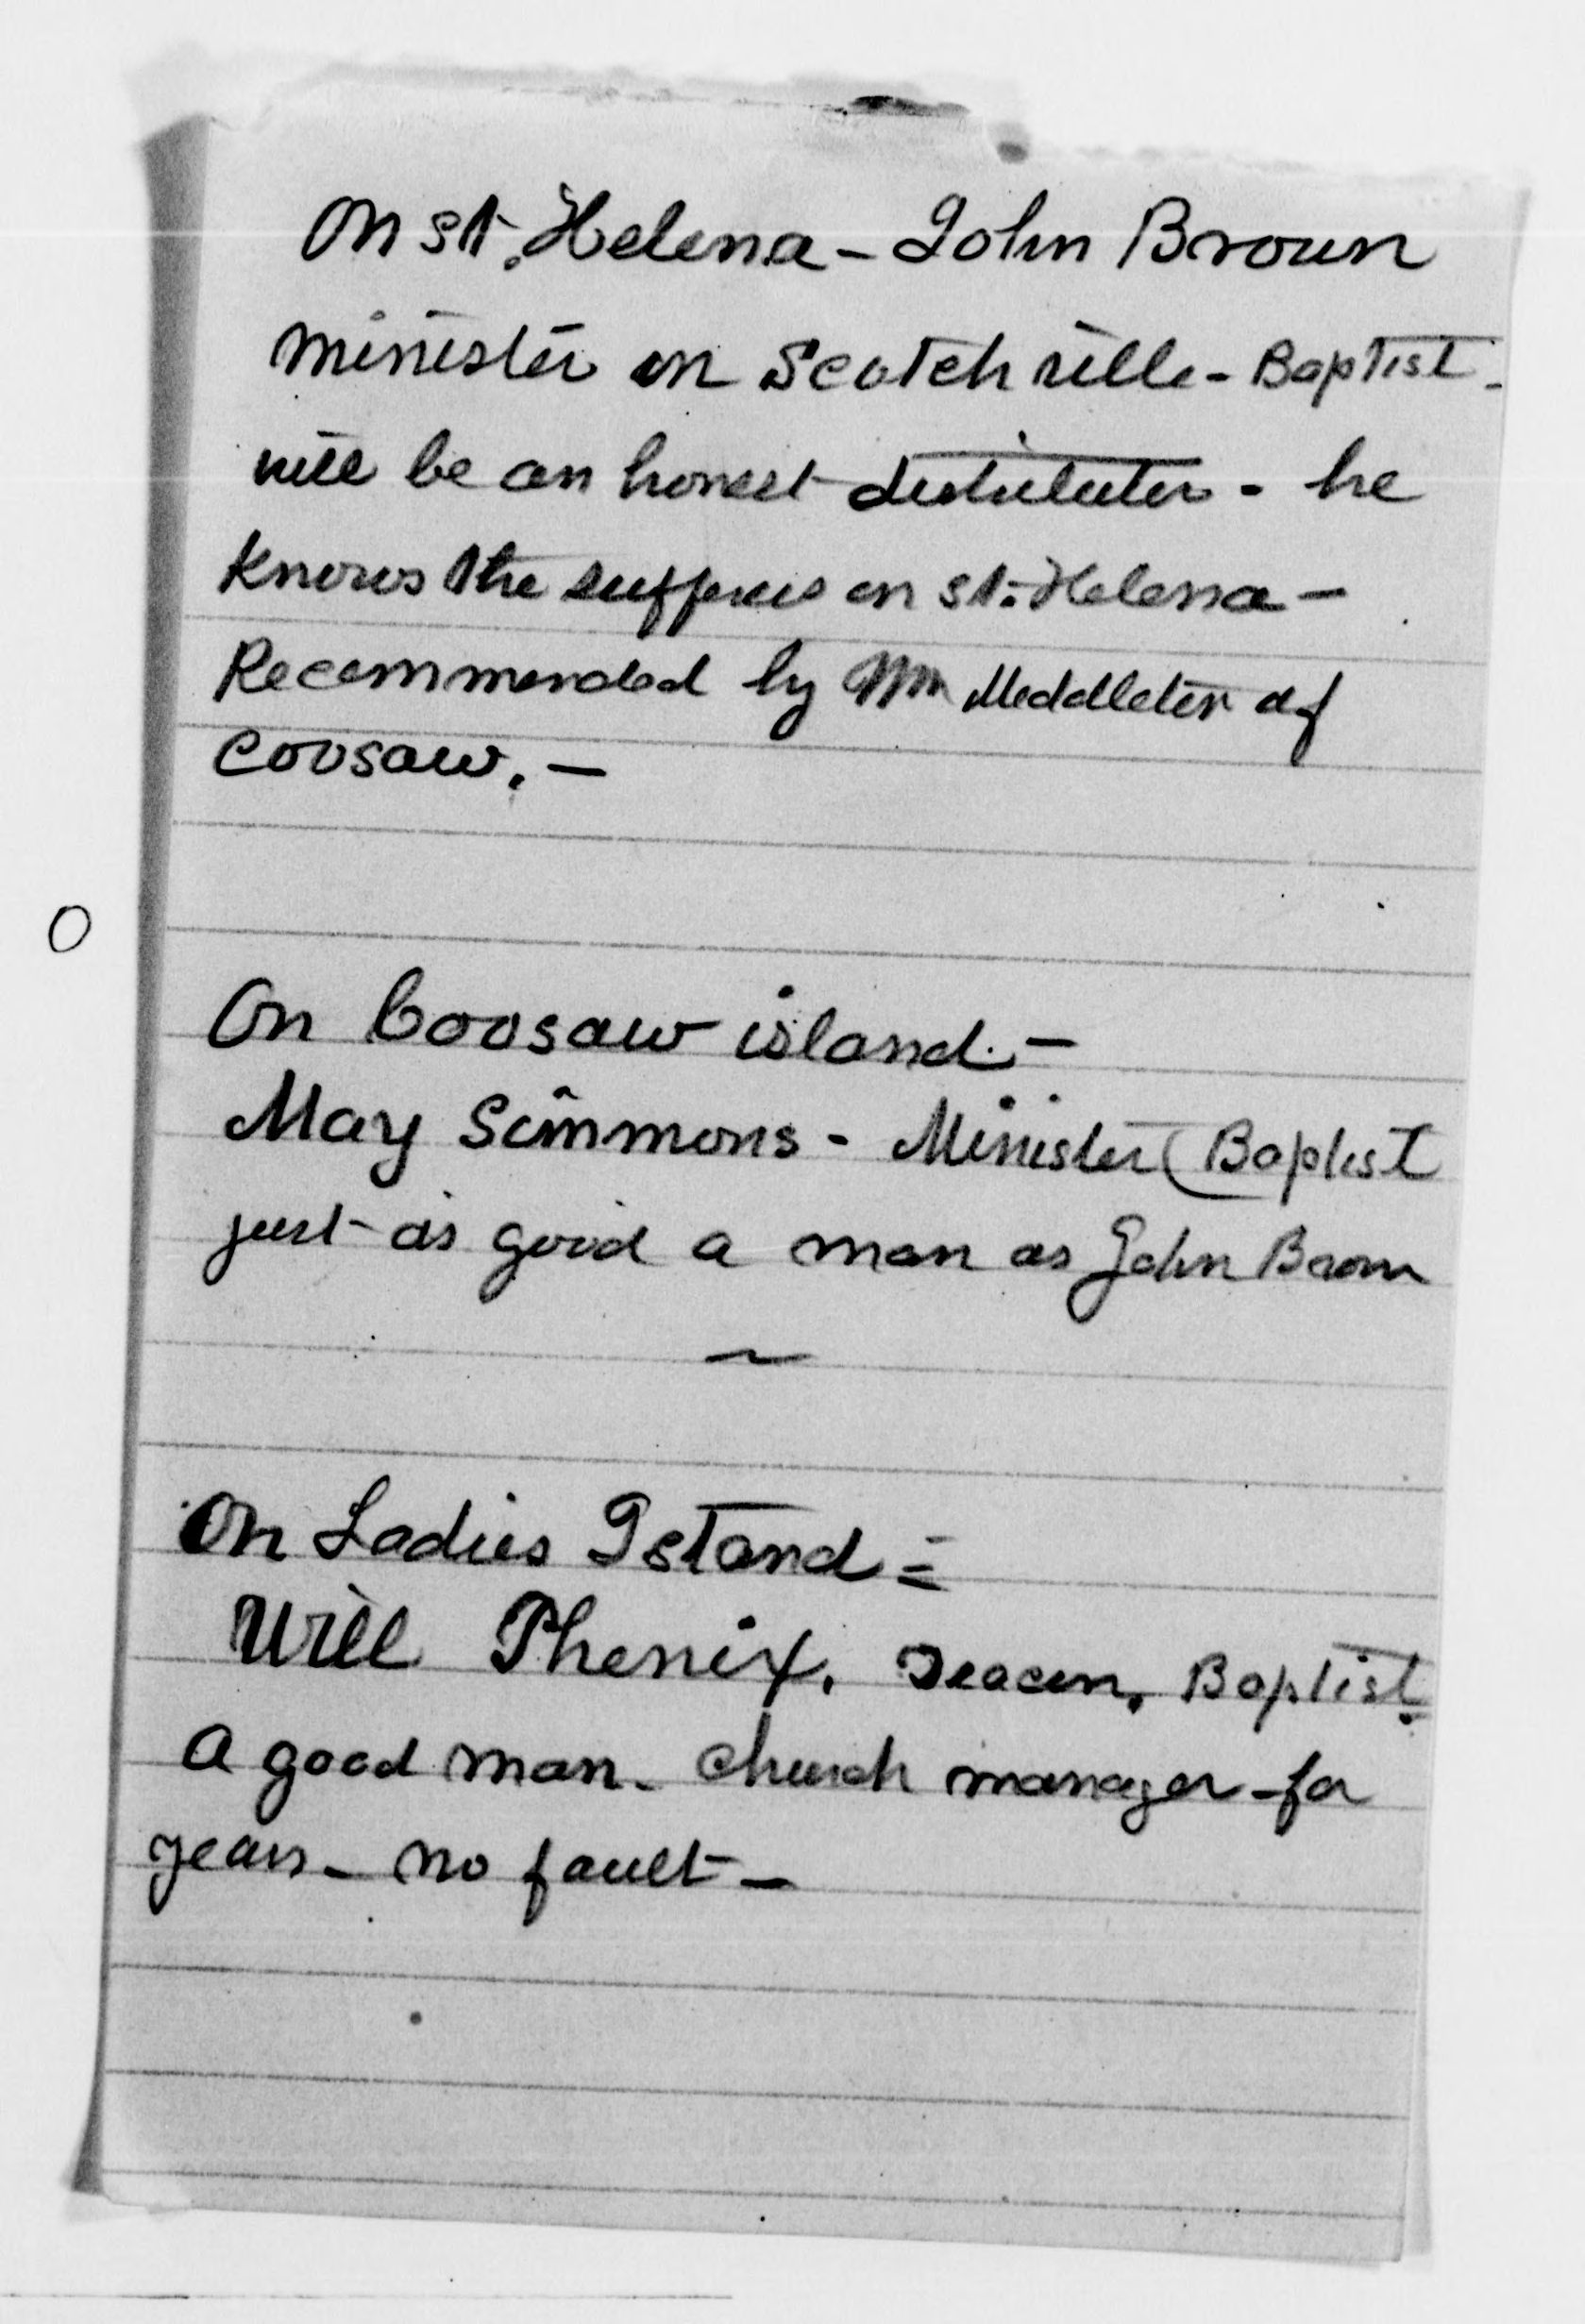 On St. Helena - John Brown
minister on Scotchville - Baptist -
will be an honest distributer - he
knows the sufferers on St. Helena -
Recommended by Wm Middleton of
Coosaw. -
On Coosaw island. -
May Simmons - Minister (Baptist
just as good a man as John Brown
On Ladies Island =
Will Phenix. Deacon. Baptist.
a good man - church manager for
years - no fault -